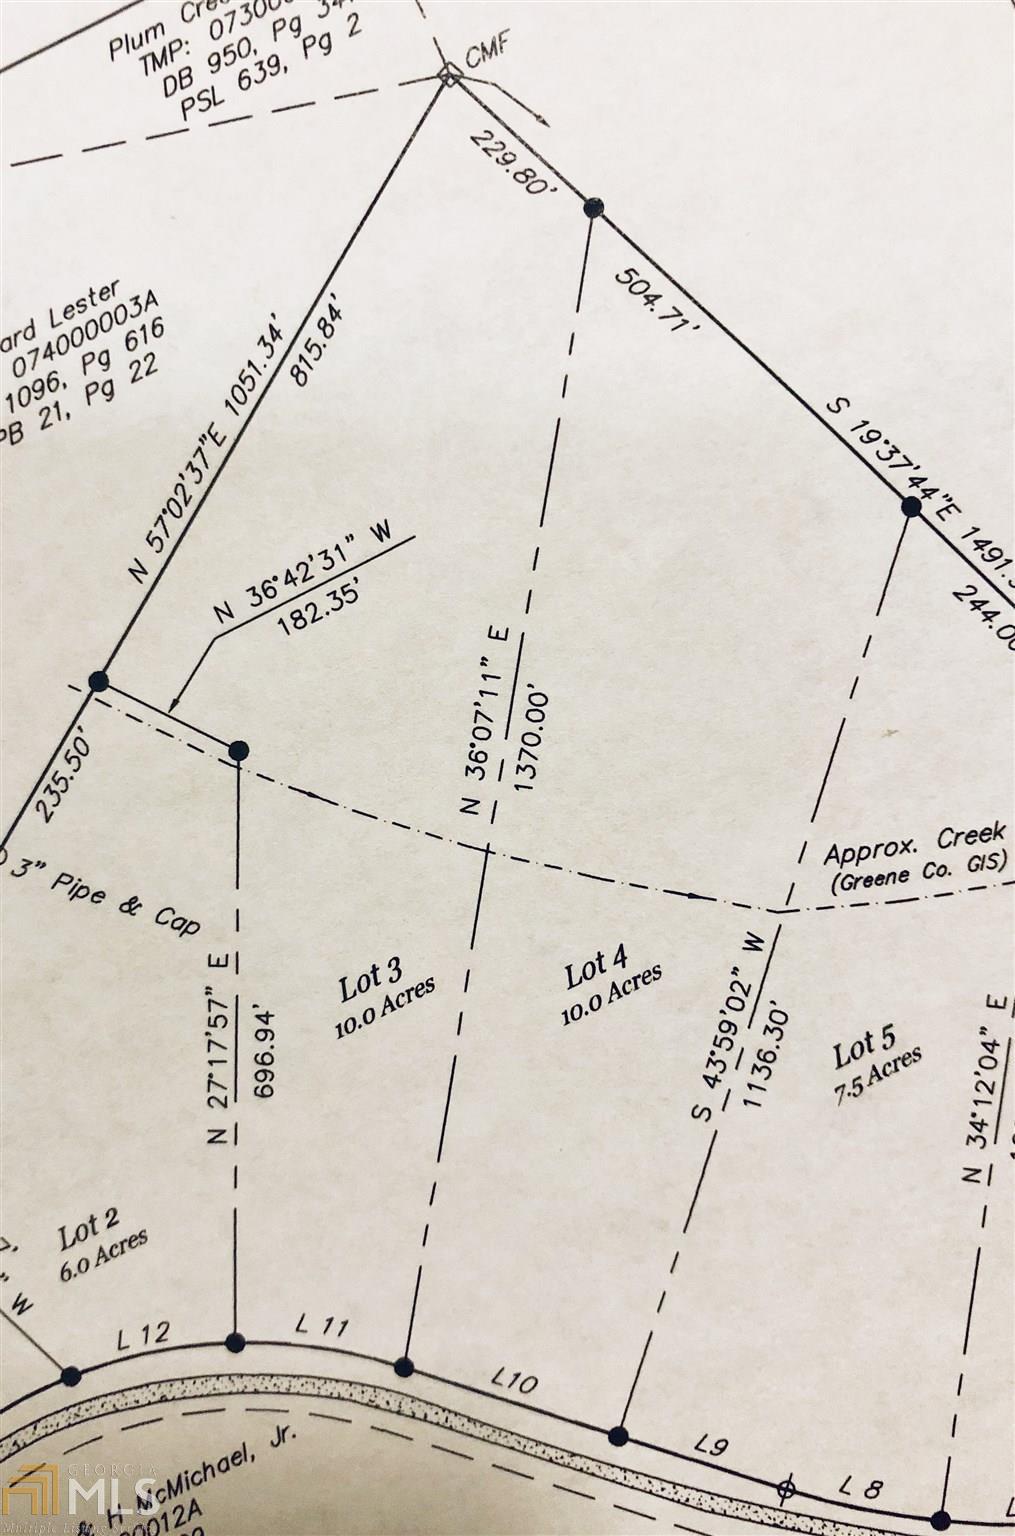 Plum
TMP:
DB 950, Pg
PSL 639, Pg 2
CMF
229.80'
504.71'
S 19°37'44"E
244.
Lester
074000003A
1096, Pg 616
PB 21, Pg 22
N 57°02'37"E 1051.34'
815.84'
N 36°42'31" W
182.35'
235.50'
3" Pipe & Cap
N 36°07'11" E
1370.00'
Approx. Creek
(Greene Co. GIS)
Lot 3
10.0 Acres
Lot 4
10.0 Acres
N 27°17'57" E
696.94'
S 43°59'02" W
1136.30'
Lot 5
7.5 Acres
N 34°12'04" E
Lot 2
6.0 Acres
W
L 12
L 11
L10
L9
L 8
& H. McMichael, Jr.
GEORGIA
MLS
Multiple Listing